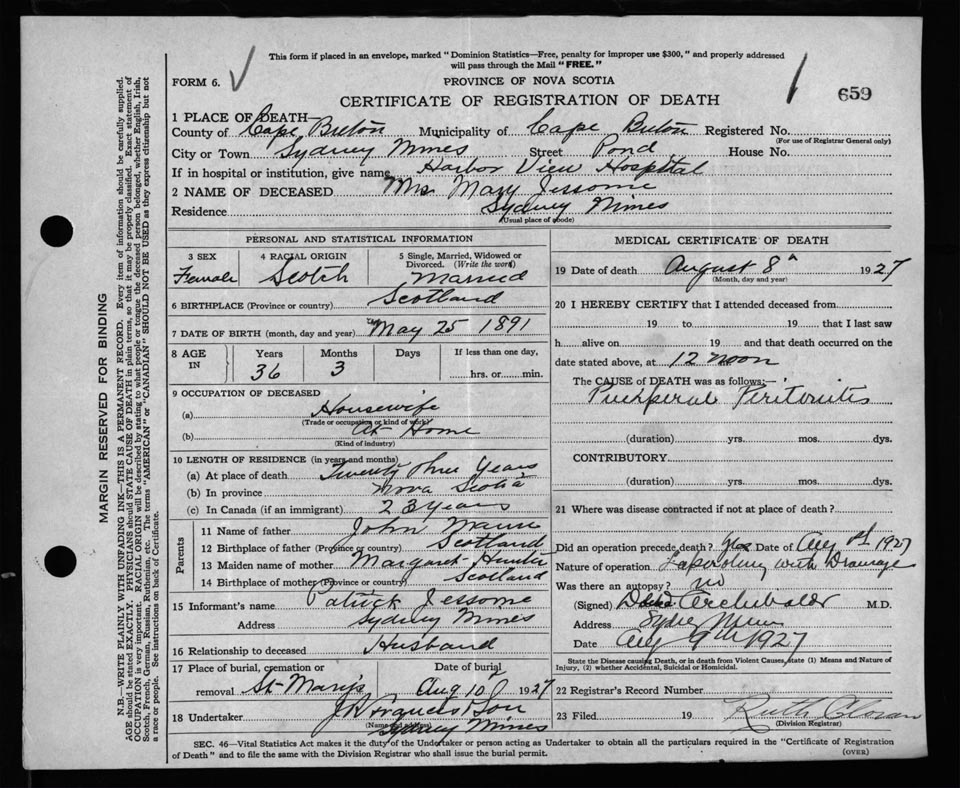 This form if placed in an envelope, marked "Dominion Statistics—Free, penalty for improper use $300," and properly addressed
will pass through the Mail "FREE."
FORM 6.
PROVINCE OF NOVA SCOTIA
CERTIFICATE OF REGISTRATION OF DEATH
659
1 PLACE OF DEATH—
County of Cape Breton Municipality of Cape Breton Registered No.
(For use of Registrar General only)
City or Town Sydney Mines Street Pond House No.
If in hospital or institution, give name Harbor View Hospital
2 NAME OF DECEASED Mrs Mary Jessome
Residence Sydney Mines
(Usual place of abode)
PERSONAL AND STATISTICAL INFORMATION
3 SEX 4 RACIAL ORIGIN 5 Single, Married, Widowed or Divorced. (Write the word)
Female Scotch Married
6 BIRTHPLACE (Province or country) Scotland
7 DATE OF BIRTH (month, day and year) May 25 1891
8 AGE IN Years Months Days If less than one day,
36 3 hrs. or min.
9 OCCUPATION OF DECEASED
(a) Housewife
(Trade or occupation or kind of work)
(b) At Home
(Kind of industry)
10 LENGTH OF RESIDENCE (in years and months)
(a) At place of death Twenty three years
(b) In province Nova Scotia
(c) In Canada (if an immigrant) 23 years
Parents
11 Name of father John
12 Birthplace of father (Province or country) Scotland
13 Maiden name of mother Margaret Hunter
14 Birthplace of mother (Province or country) Scotland
15 Informant's name Patrick Jessome
Address Sydney Mines
16 Relationship to deceased Husband
17 Place of burial, cremation or removal St Mary's Date of burial Aug 10 1927
18 Undertaker Francis & Son
(Name and address)
Sydney Mines
MEDICAL CERTIFICATE OF DEATH
19 Date of death August 8th 1927
(Month, day and year)
20 I HEREBY CERTIFY that I attended deceased from
19 to 19 that I last saw
h alive on 19 and that death occurred on the
date stated above, at 12 noon
The CAUSE of DEATH was as follows:—
Puerperal Peritonitis
(duration) yrs. mos. dys.
CONTRIBUTORY
(duration) yrs. mos. dys.
21 Where was disease contracted if not at place of death?
Did an operation precede death? yes Date of Aug 1927
Nature of operation Laparotomy with Drainage
Was there an autopsy? no
(Signed) Archibald M.D.
Address Sydney Mines
Date Aug 9th 1927
State the Disease causing Death, or in death from Violent Causes, state (1) Means and Nature of
Injury, (2) whether Accidental, Suicidal or Homicidal.
22 Registrar's Record Number
23 Filed 19 Ruth
(Division Registrar)
SEC. 46—Vital Statistics Act makes it the duty of the Undertaker or person acting as Undertaker to obtain all the particulars required in the "Certificate of Registration
of Death" and to file the same with the Division Registrar who shall issue the burial permit.
(OVER)
MARGIN RESERVED FOR BINDING
N.B.—WRITE PLAINLY WITH UNFADING INK—THIS IS A PERMANENT RECORD. Every item of information should be carefully supplied.
AGE should be stated EXACTLY. PHYSICIANS should STATE CAUSE OF DEATH in plain terms, so that it may be properly classified. Exact statement of
OCCUPATION is very important. RACIAL ORIGIN will be described by stating to what people or tongue the deceased person belonged, whether English, Irish,
Scotch, French, German, Russian, Ruthenian, etc. The terms "AMERICAN" or "CANADIAN" SHOULD NOT BE USED as they express citizenship but not
a race or people. See instructions on back of Certificate.